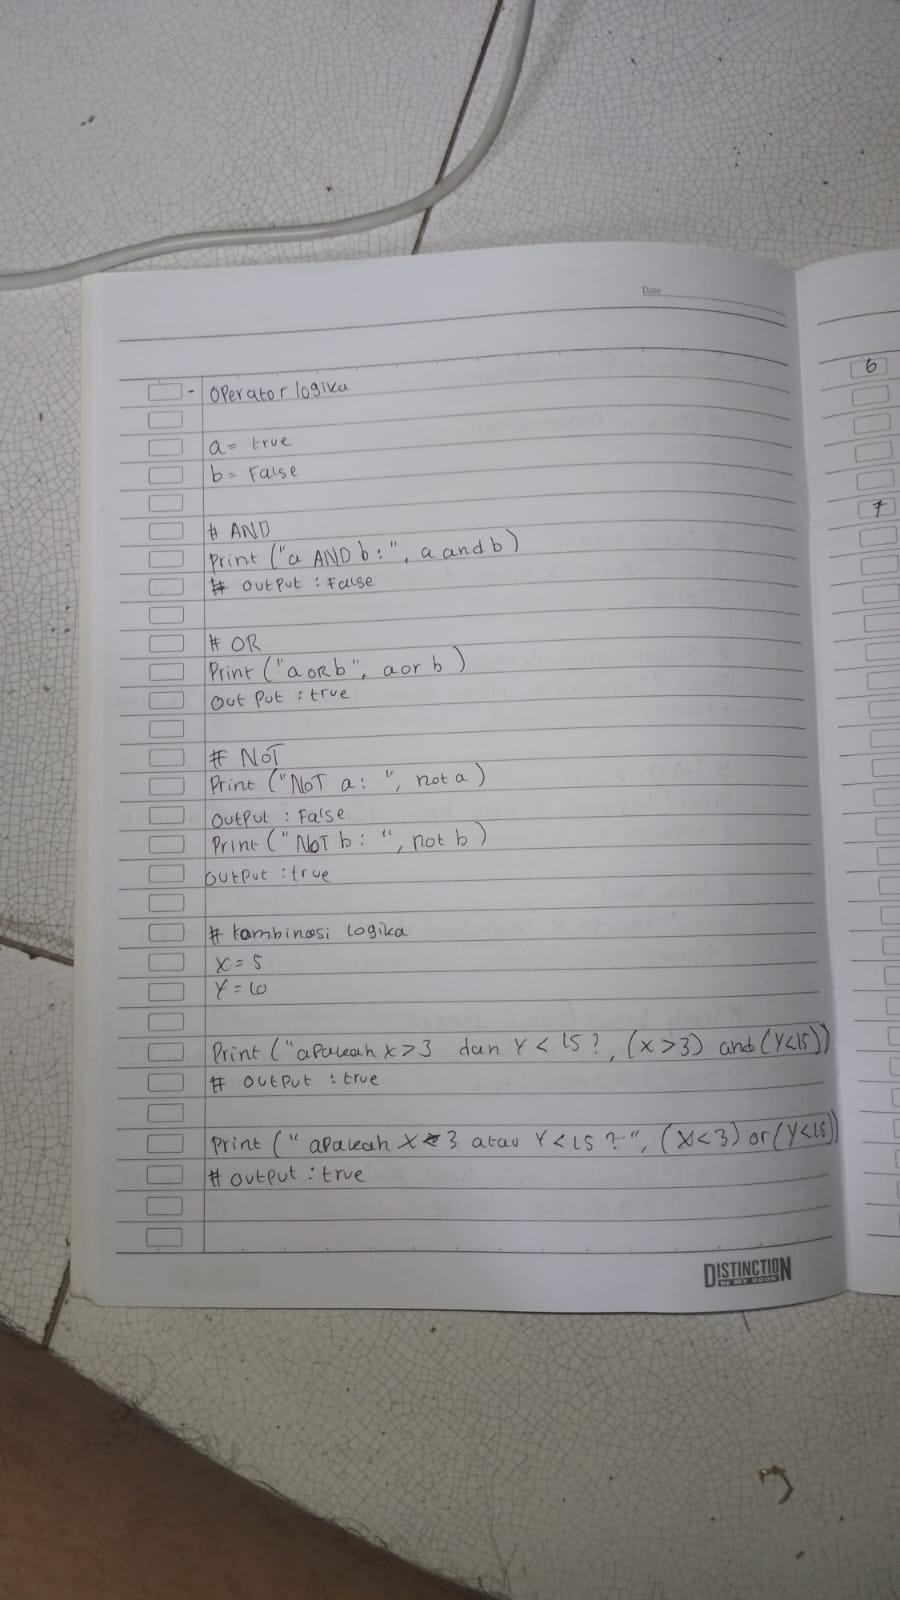 Date
- Operator logika
a = true
b = False
# AND
Print ("a AND b : ", a and b)
# Output : False
# OR
Print ("a OR b", a or b)
Out Put : true
# NOT
Print ("NOT a : ", not a)
Output : False
Print ("NOT b : ", not b)
Output : true
# kombinasi logika
X = 5
Y = 10
Print ("apakah X > 3 dan Y < 15 ?, (X > 3) and (Y < 15))
# Output : true
Print (" apakah X < 3 atau Y < 15 ?", (X < 3) or (Y < 15))
# Output : true
DISTINCTION
by MY BOOK
6
7